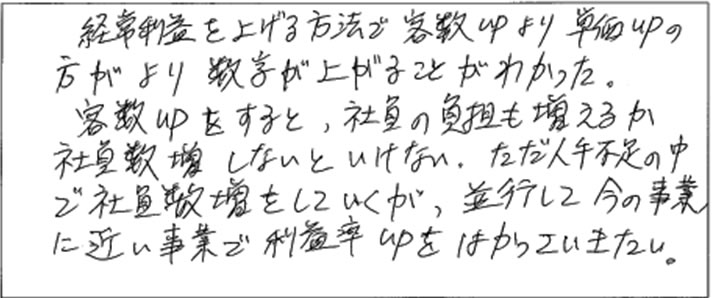 経常利益を上げる方法で客数upより単価upの
方がより数字が上がることがわかった。
客数upをすると、社員の負担も増えるか
社員数増しないといけない。ただ人手不足の中
で社員数増をしていくが、並行して今の事業
に近い事業で利益率upをはかっていきたい。